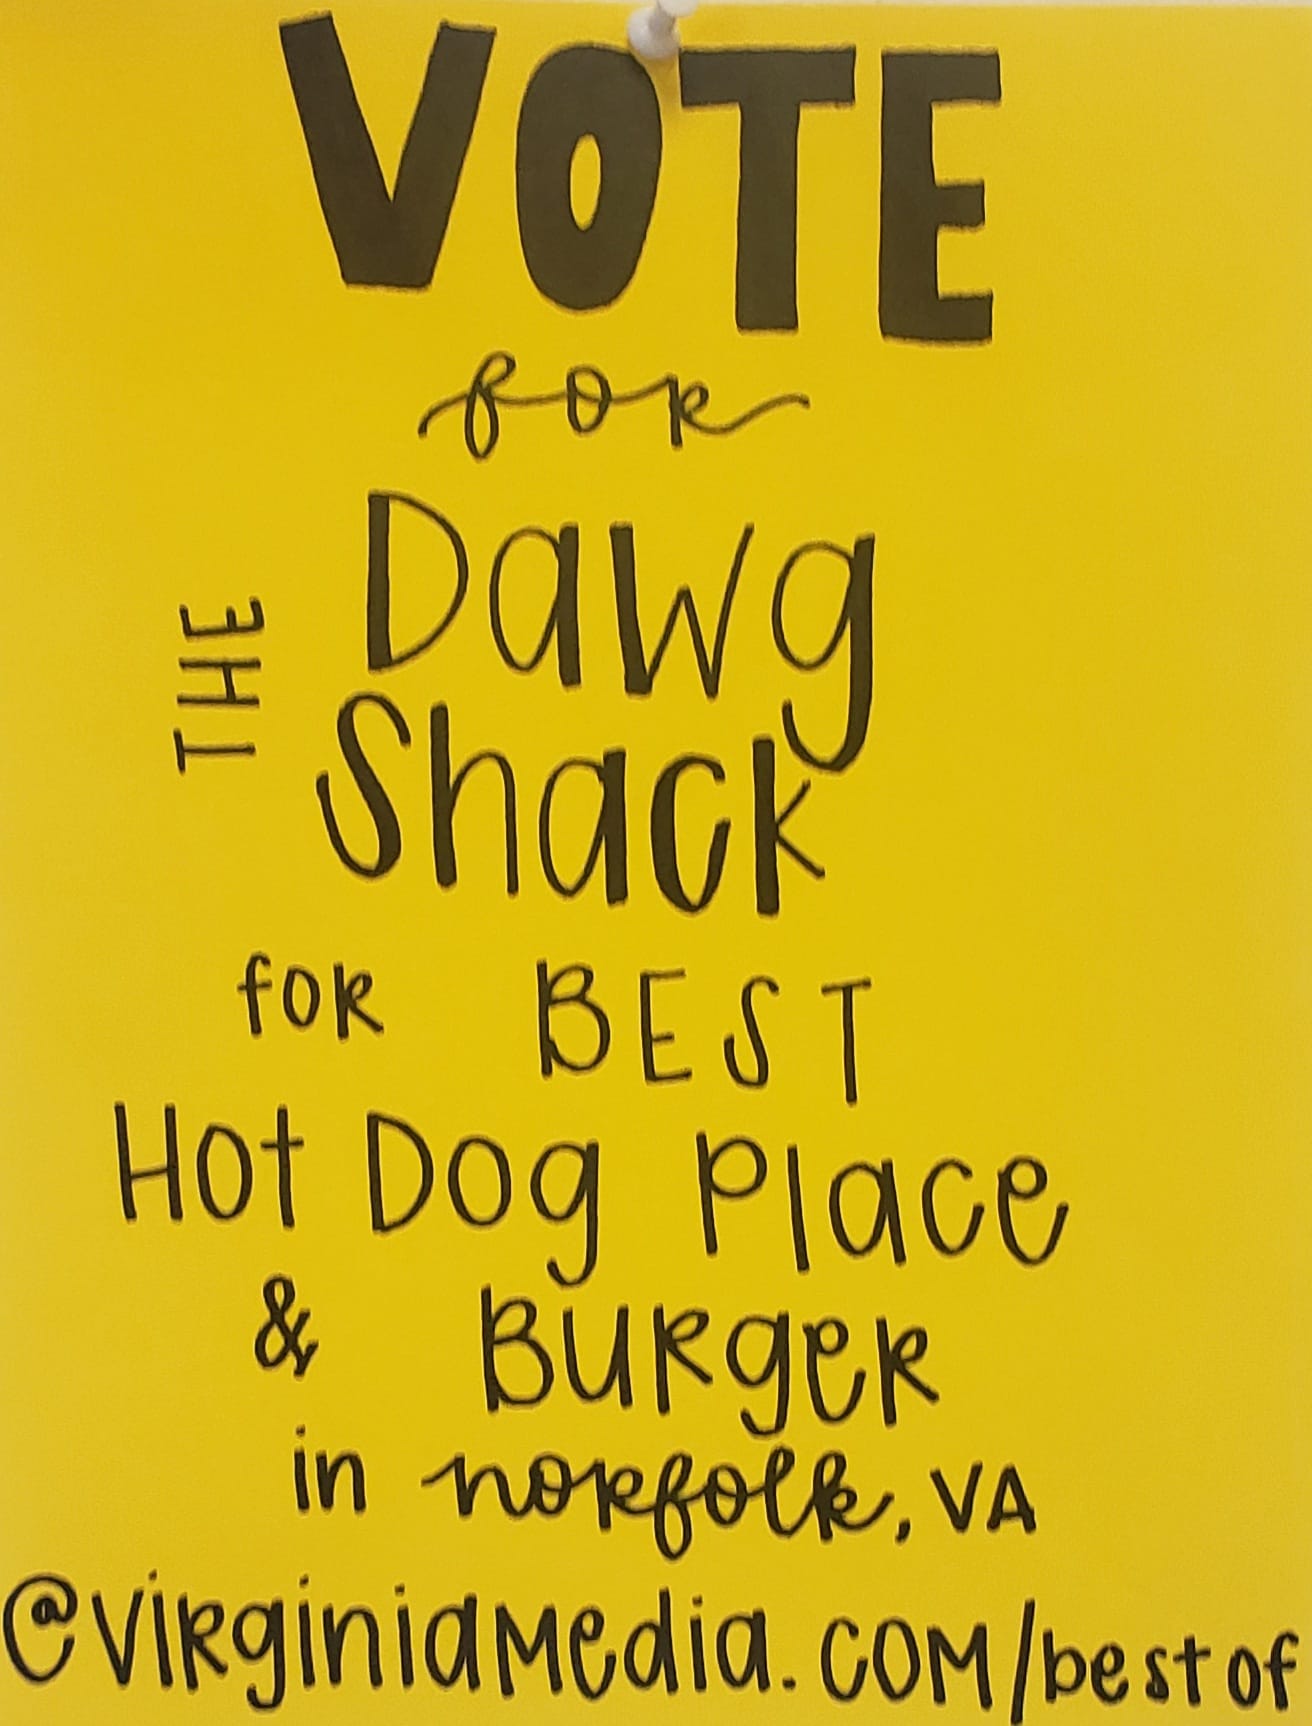 VOTE
for
THE Dawg
Shack
for BEST
Hot Dog Place
& Burger
in norfolk, VA
@virginiaMedia.com/bestof